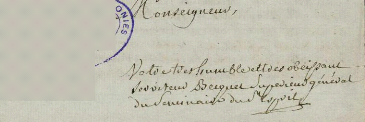 ONIES
Monseigneur,
Votre tres humble et tres obeissant
serviteur Becquet Superieur général
du Seminaire du St Esprit